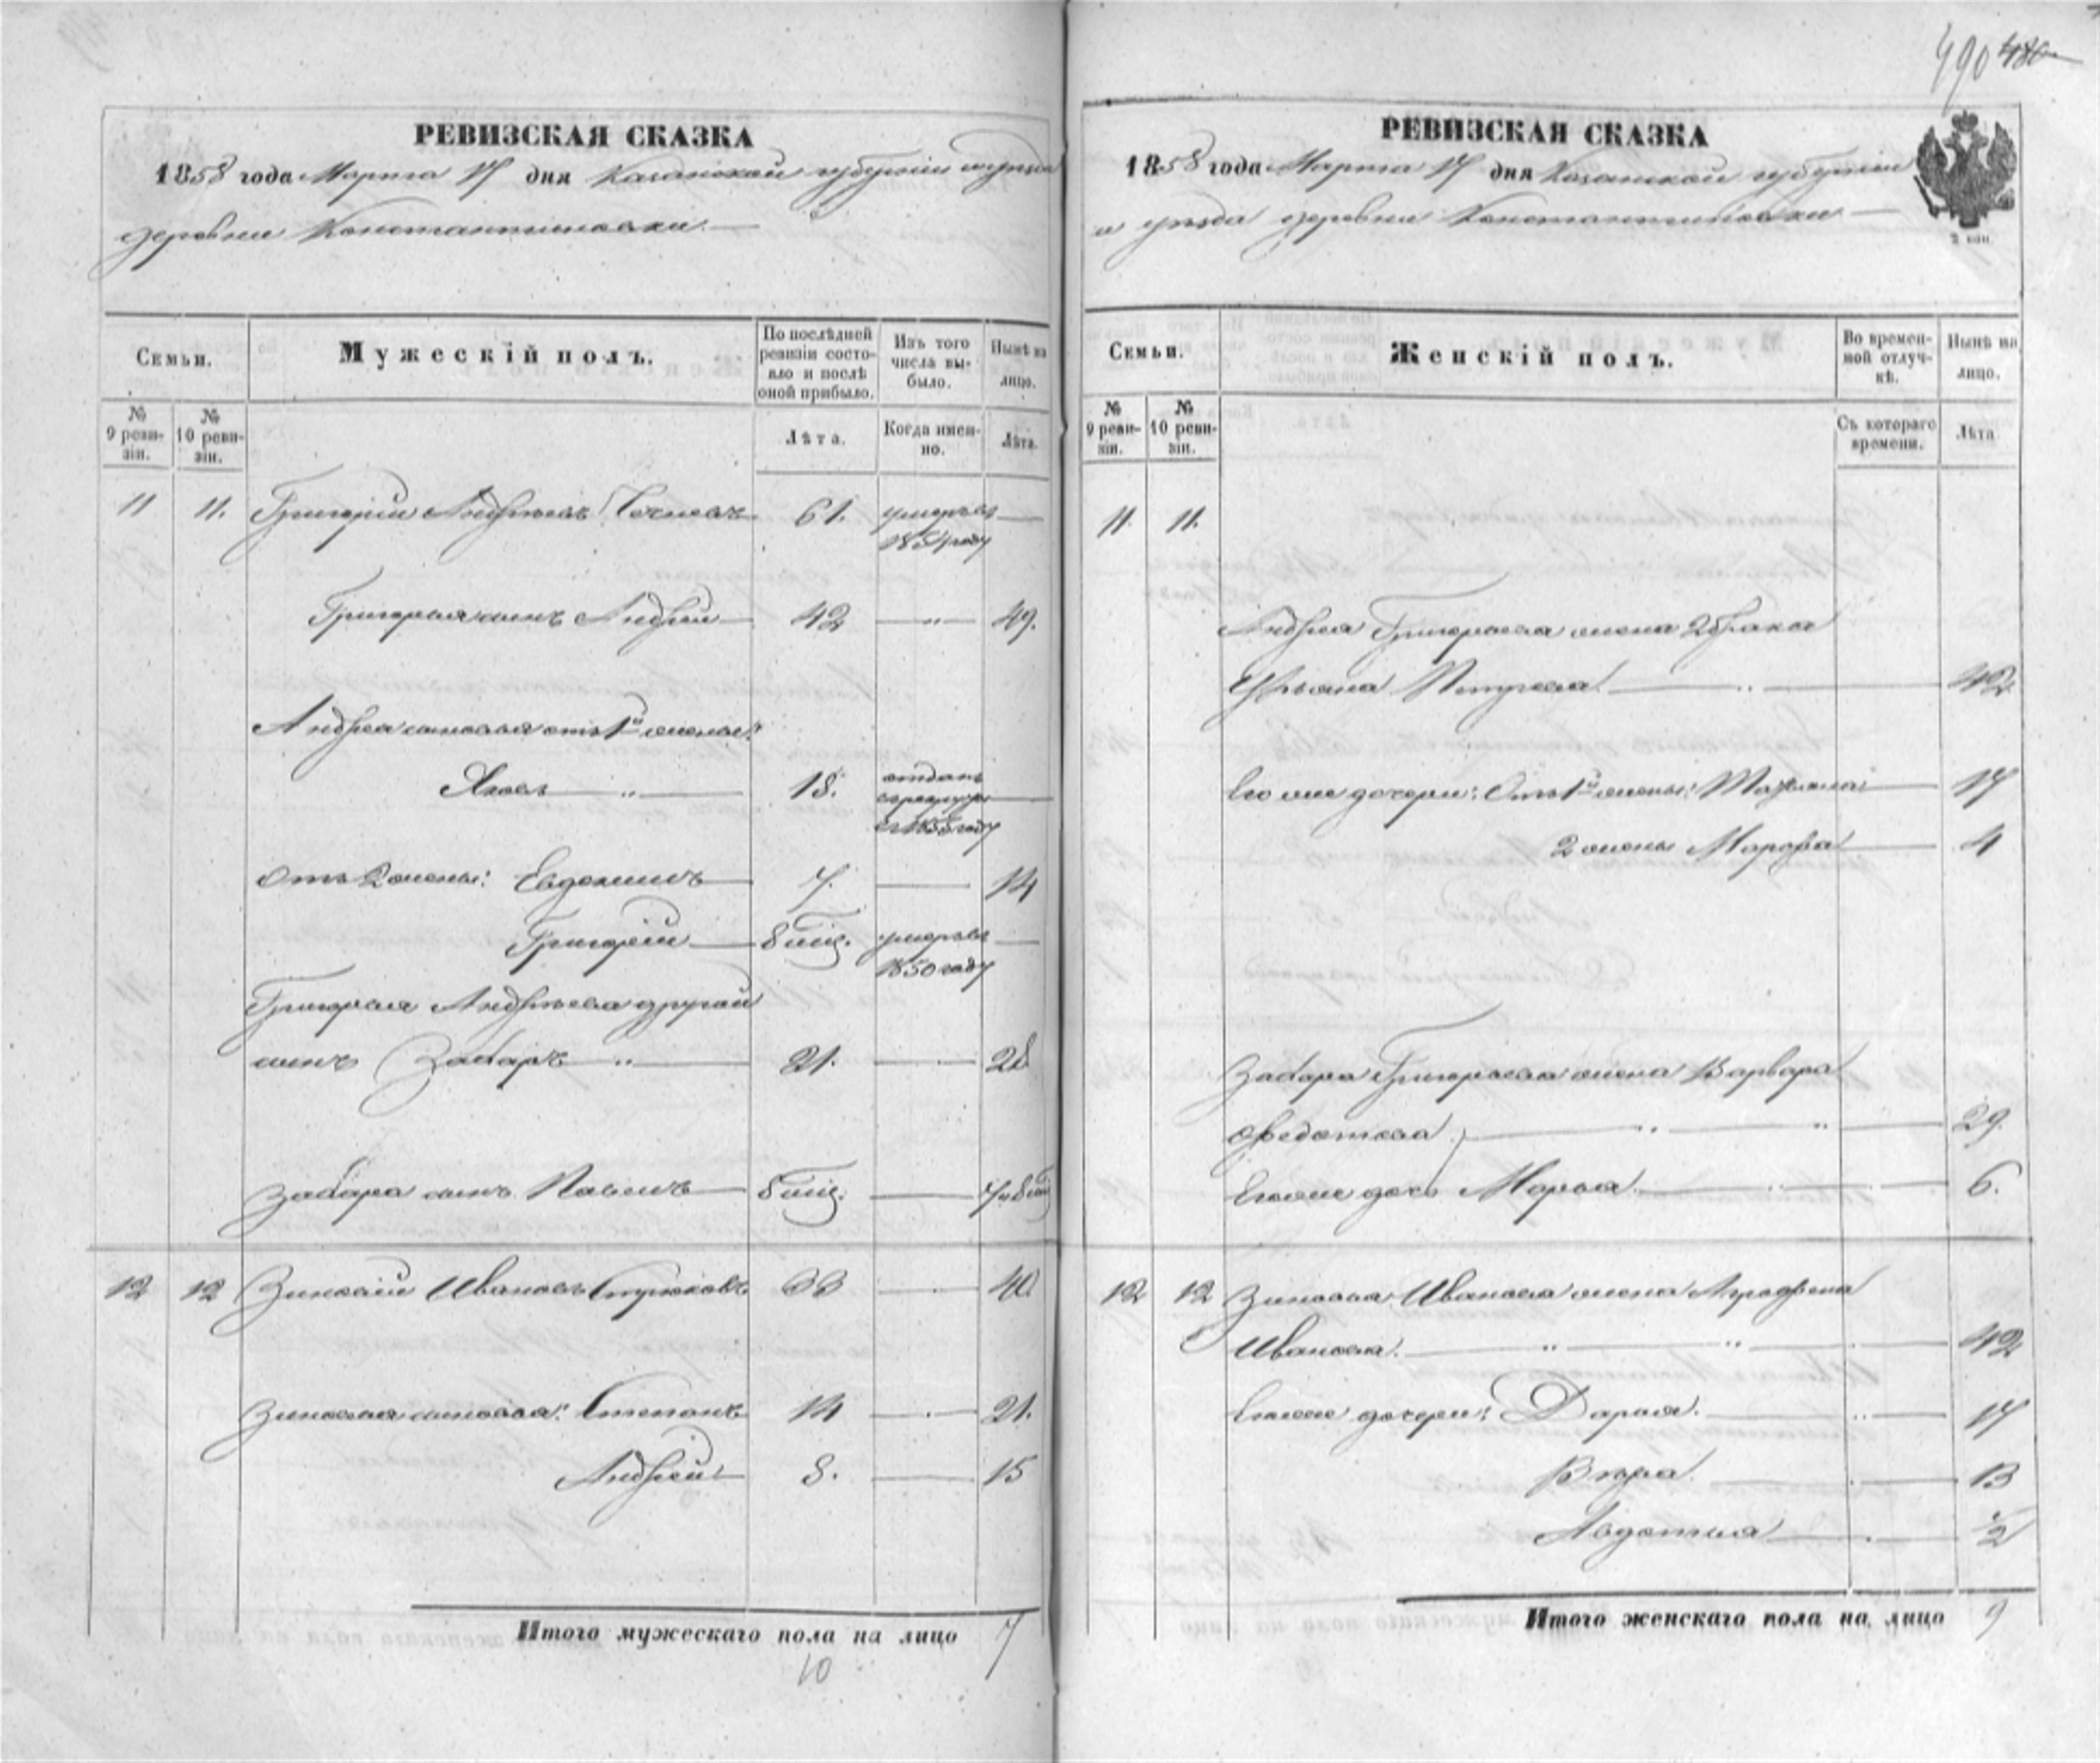 490 480
РЕВИЗСКАЯ СКАЗКА
1858 года Марта 17 дня Казанской губернии и уезда
деревни Константиновки
Семьи.
Мужескій полъ.
По послѣдней ревизіи состояло и послѣ оной прибыло.
Изъ того числа выбыло.
Нынѣ на лицо.
№ 9 ревизіи.
№ 10 ревизіи.
Лѣта.
Когда именно.
Лѣта.
11 11. Григорій Андреевъ 61. умеръ въ
1854 году
Григорья сынъ Андрей 42 — " — 49.
Андрея сыновья отъ 1й жены:
Яковъ " 18. отданъ
въ рекруты
въ 1855 году
Отъ 2 жены: Евдокимъ 7. 14
Григорій 8 мѣс. умеръ въ
1850 году
Григорья Андреева другой
сынъ Захаръ " 21. 28
Захара сынъ Павелъ 8 мѣс. 7 и 8 мѣс
12 12 Зиновій Ивановъ Бирюковъ 33 40.
Зиновья сыновья: Степанъ 14 21.
Андрей 8. 15
Итого мужескаго пола на лицо 7
10
РЕВИЗСКАЯ СКАЗКА
1858 года Марта 17 дня Казанской губерніи
и уезда деревни Константиновки
2 коп.
Семьи.
Женскій полъ.
Во временной отлучкѣ.
Нынѣ на лицо.
№ 9 ревизіи.
№ 10 ревизіи.
Съ котораго времени.
Лѣта
11. 11.
Андрея Григорьева жена 2 брака
Ульяна Петрова " 42
Его же дочери: Отъ 1й жены: Татьяна 17
2 жены Марфа 4
Захара Григорьева жена Варвара
Федотова " " 29.
Его же дочь Марья 6.
12 12 Зиновья Иванова жена Аграфена
Иванова. " " 42
Его же дочери: Дарья. 17
Вѣра. 13
Авдотья 1/2
Итого женскаго пола на лицо 9